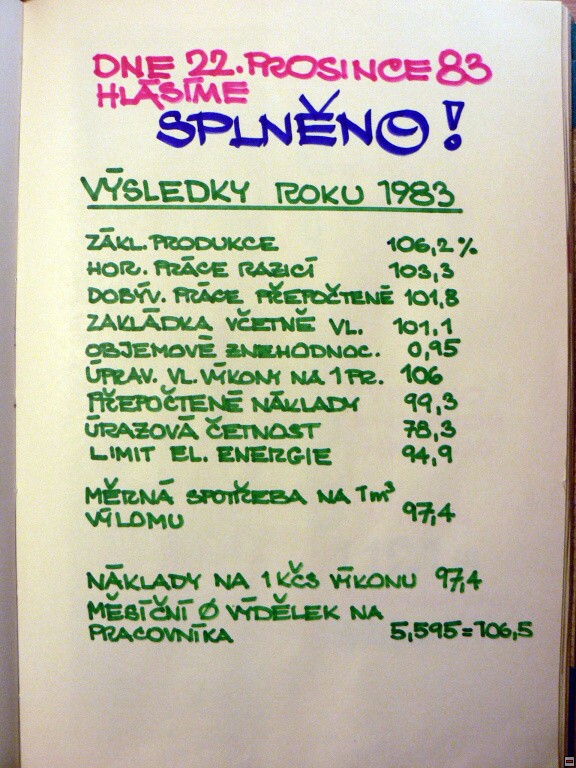 DNE 22. PROSINCE 83
HLÁSÍME
SPLNĚNO!
VÝSLEDKY ROKU 1983
ZÁKL. PRODUKCE 106,2 %
HOR. PRÁCE RAZICÍ 103,3
DOBÝV. PRÁCE PŘEPOČTENÉ 101,8
ZAKLÁDKA VČETNĚ VL. 101,1
OBJEMOVÉ ZNEHODNOC. 0,95
ÚPRAV. VL. VÝKONY NA 1 PR. 106
PŘEPOČTENÉ NÁKLADY 99,3
ÚRAZOVÁ ČETNOST 78,3
LIMIT EL. ENERGIE 94,9
MĚRNÁ SPOTŘEBA NA 1 m³
VÝLOMU 97,4
NÁKLADY NA 1 KČS VÝKONU 97,4
MĚSÍČNÍ Ø VÝDĚLEK NA
PRACOVNÍKA 5,595=106,5